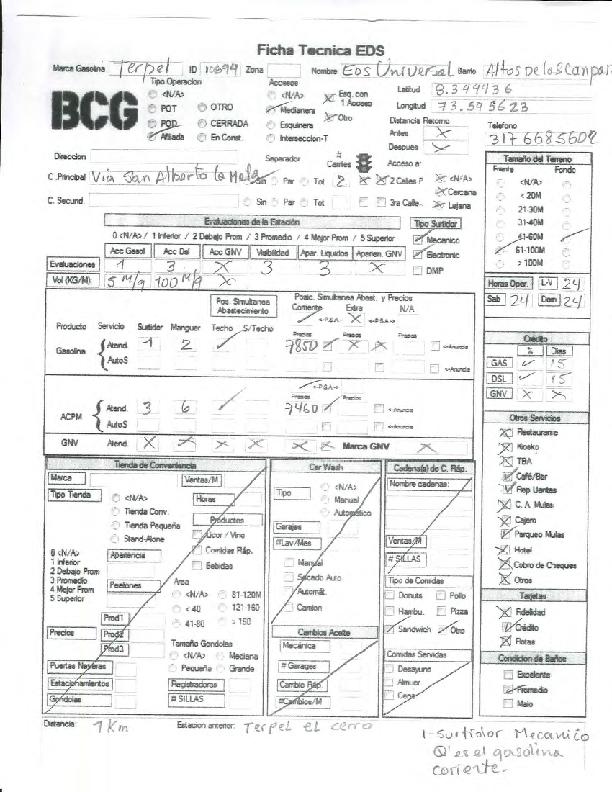 Ficha Tecnica EDS
Marca Gasolina Terpel ID 10894 Zona Nombre Eds Universal Barrio Altos de Los Campa
BCG
Tipo Operacion
<N/A>
POT OTRO
POD CERRADA
Afiliada En Const.
Accesos
<N/A> Esq. con 1 Acceso
Medianera Otro
Esquinera
Interseccion-T
Latitud 8.399936
Longitud 73.593623
Distancia Retorno
Antes X
Despues X
Telefono
317 6685602
Direccion
Separador # Carriles Acceso a:
C. Principal Via San Alberto la Mata Sin Par Tot 2 2 Calles P <N/A>
Cercana
C. Secund. Sin Par Tot 3ra Calle Lejana
Tamaño del Terreno
Frente Fondo
<N/A>
< 20M
21-30M
31-40M
41-60M
61-100M
> 100M
Evaluaciones de la Estación Tipo Surtidor
0 <N/A> / 1 Inferior / 2 Debajo Prom / 3 Promedio / 4 Mejor Prom / 5 Superior Mecanico
Acc Gasol Acc Dsl Acc GNV Visibilidad Apar. Liquidos Aparien. GNV Electronic
Evaluaciones 1 3 X 3 3 X DMP
Vol (KG/M) 5 M/g 100 M/g X
Horas Oper. L-V 24
Sab 24 Dom 24
Pos. Simultanea Abastecimiento
Posic. Simultanea Abast. y Precios
Corriente Extra N/A
<-PSA-> X <-PSA->
Producto Servicio Surtidor Manguer Techo S/Techo Precios Precios
Gasolina Atend. 1 2 7850 X X <-Anuncia
AutoS <-Anuncia
<-PSA->
Precios Precios
ACPM Atend. 3 6 7460 <-Anuncia
AutoS <-Anuncia
GNV Atend. X X X X X X Marca GNV X
Crédito
% Dias
GAS 15
DSL 15
GNV X X
Otros Servicios
Restaurante
Kiosko
TBA
Café/Bar
Rep Llantas
C. A. Mulas
Cajero
Parqueo Mulas
Hotel
Cobro de Cheques
Otros
Tarjetas
Fidelidad
Crédito
Flotas
Condicion de Baños
Excelente
Promedio
Malo
Tienda de Conveniencia
Marca Ventas/M
Tipo Tienda <N/A> Horas
Tienda Conv.
Tienda Pequeña Productos
Stand-Alone Licor / Vino
0 <N/A> Apariencia Comidas Ráp.
1 Inferior Bebidas
2 Debajo Prom
3 Promedio Peatones Area
4 Mejor Prom <N/A> 81-120M
5 Superior < 40 121-160
41-80 > 150
Prod1
Precios Prod2 Tamaño Gondolas
Prod3 <N/A> Mediana
Puertas Neveras Pequeña Grande
Estacionamientos Registradoras
Gondolas # SILLAS
Car Wash
Tipo <N/A>
Manual
Automático
Garajes
#Lav/Mes
Manual
Secado Auto
Automát.
Camion
Cambios Aceite
Mecánica
# Garages
Cambio Ráp.
#Cambios/M
Cadena(s) de C. Ráp.
Nombre cadenas:
Ventas/M
# SILLAS
Tipo de Comidas
Donuts Pollo
Hambu. Pizza
Sandwich Otro
Comidas Servicias
Desayuno
Almuer
Cena
Distancia: 1 Km Estacion anterior: Terpel el cerro
1 - Surtidor Mecanico
Q' es el gasolina
coriente.